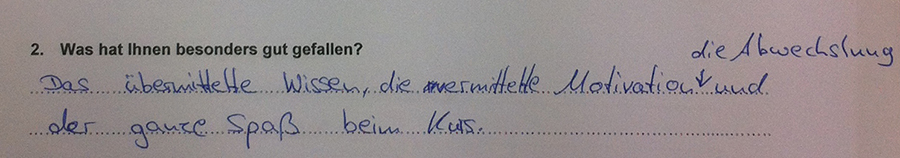 2. Was hat Ihnen besonders gut gefallen?
die Abwechslung
Das übermittelte Wissen, die vermittelte Motivation und
der ganze Spaß beim Kurs.